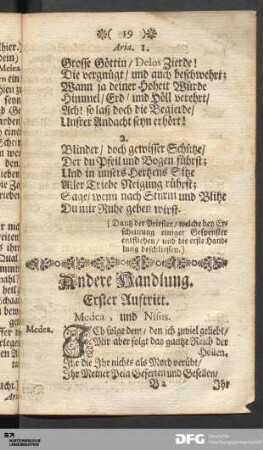 ( 19 )
Aria. 1.
Grosse Göttin / Delos Zierde!
Die vergnügt / und auch beschwehrt;
Wann ja deiner Hoheit Würde
Himmel / Erd / und Höll verehrt /
Ach! so laß doch die Begierde /
Unsrer Andacht seyn erhört!
2.
Blinder / doch gewisser Schütze /
Der du Pfeil und Bogen führst;
Und in unsers Hertzens Sitze
Aller Triebe Neigung rührst;
Sage / wenn nach Sturm und Blitz
Du mir Ruhe geben wirst.
[Dantz der Priester / welche bey Er-
scheinung einiger Gespenster
entfliehen / und die erste Hand-
lung beschliessen.]
Andere Handlung.
Erster Auftritt.
Medea, und Nisus.
Medea. Ich folge dem / den ich zuviel geliebt /
Mir aber folgt das gantze Reich der
Höllen.
Ihr die Ihr nichts als Mord verübt /
Ihr Meiner Pein Gefertten und Gesellen /
B 2 Ihr
DFG
Deutsche
Forschungsgemeinschaft